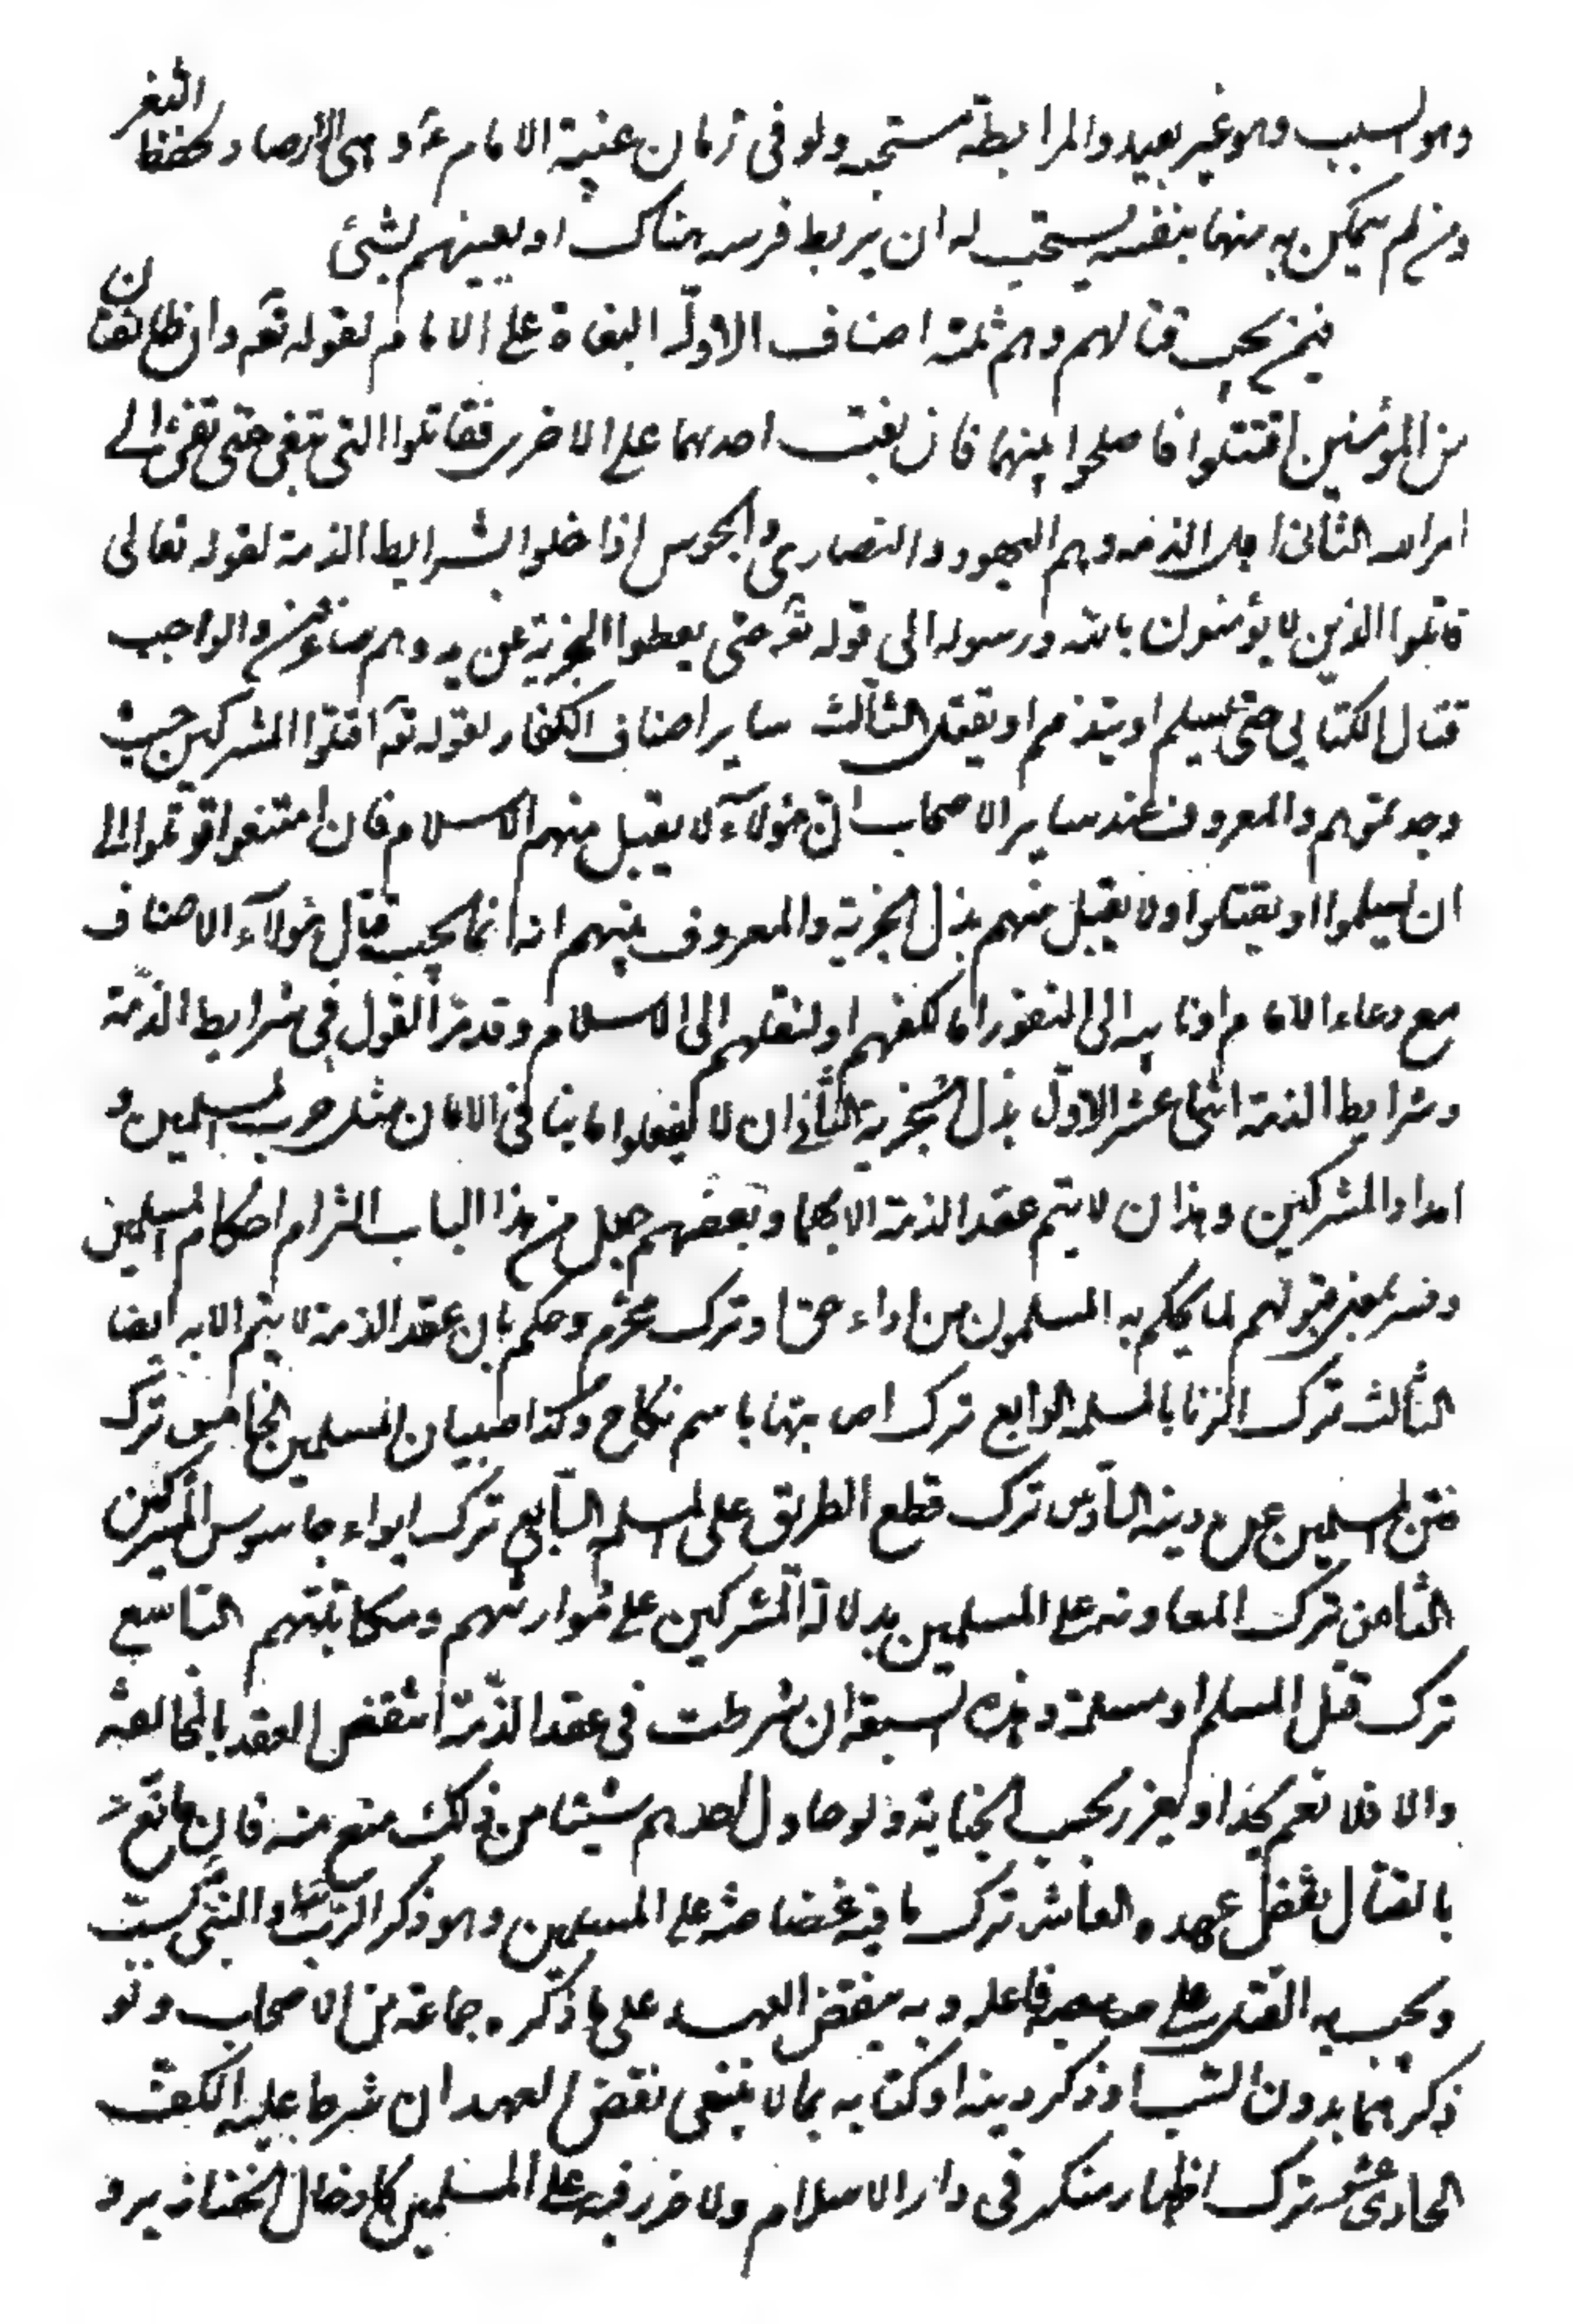 وهو لسبب وهو غير بعيد والمرابطة مستحبه ولو في زمان غيبة الامام ع وهي الارصاد لحفظ الثغر
ومن لم يتمكن به منها بنفسه يستحب له ان يربط فرسه هناك او يعينهم بشئ
فيمن يجب قتالهم وهم ثلثة اصناف الاول البغاة على الامام لقوله تعه وان طائفتان
من المؤمنين اقتتلوا فاصلحوا بينهما فان بغت احدهما على الاخرى فقاتلوا التي تبغى حتى تفئ الى
امر الله الثاني اهل الذمه وهم اليهود والنصارى والمجوس اذا خلوا بشرايط الذمة لقوله تعالى
قاتلوا الذين لا يؤمنون بالله ورسوله الى قوله تعه حتى يعطوا الجزية عن يد وهم صاغرون والواجب
قتال الكتابي حتى يسلم او يتذمم او يقتل الثالث ساير اصناف الكفار لقوله تعه اقتلوا المشركين حيث
وجدتموهم والمعروف عند ساير الاصحاب ان هؤلاء لا يقبل منهم الا الاسلام فان امتنعوا قوتلوا الى
ان يسلموا او يقتلوا ولا يقبل منهم بذل الجزية والمعروف بينهم انه انما يجب قتال هؤلاء الاصناف
مع دعاء الامام او نايبه الى النفور اما لكفهم او لنقلهم الى الاسلام وقد مر القول في شرايط الذمة
وشرايط الذمة اثنا عشر الاول بذل الجزية الثاني ان لا يفعلوا ما ينافي الامان مثل حرب المسلمين و
امداد المشركين وهذان لا يتم عقد الذمة الا بهما وبعضهم جعل من هذا الباب التزام احكام المسلمين
وفسر بمعنى قبولهم لما يحكم به المسلمون من اداء حق او ترك محرم وحكم بان عقد الذمة لا يتم الا به ايضا
الثالث ترك الزنا بالمسلمة الرابع ترك اصابتها باسم نكاح وكذا صبيان المسلمين الخامس ترك
فتن المسلمين عن دينه السادس ترك قطع الطريق على المسلم السابع ترك ايواء جاسوس المشركين
الثامن ترك المعاونه على المسلمين بدلالة المشركين على عوراتهم ومكاتبتهم التاسع
ترك قتل المسلم او مسلمة وهذه السبعة ان شرطت في عقد الذمة انتقض العقد بالمخالفة
والا فلا نعم يحد او يعزر بحسب الجناية ولو حاول احدهم شيئا من ذلك منع منه فان مانع
بالقتال نقض عهده العاشر ترك ما فيه غضاضة على المسلمين وهو ذكر الرب والنبي بسب
ويجب به القتل على فاعله وبه ينقض العهد على ما ذكره جماعة من الاصحاب ولو
ذكرهما بدون السب او ذكر دينه او كتابه بما لا ينبغي نقض العهد ان شرط عليه الكف
الحادي عشر ترك اظهار منكر في دار الاسلام ولا ضرر فيه على المسلمين كادخال الخنازير و